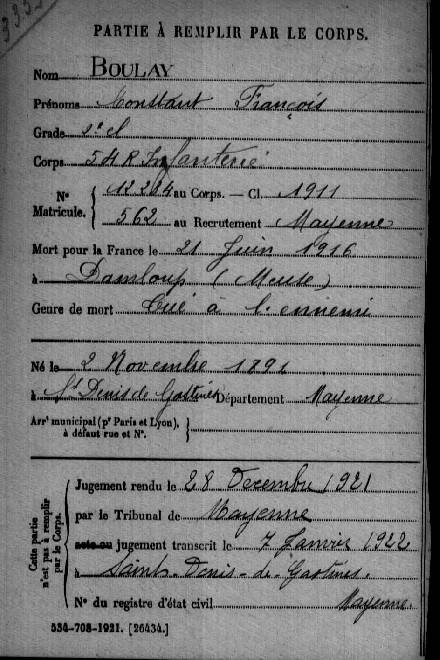 PARTIE À REMPLIR PAR LE CORPS.
Nom BOULAY
Prénoms Constant François
Grade 2e cl
Corps 54 R Infanterie
No Matricule. { 12224 au Corps. — Cl. 1911
562 au Recrutement Mayenne
Mort pour la France le 21 Juin 1916
à Damloup (Meuse)
Genre de mort Tué à l'ennemi
Né le 2 Novembre 1891
à St Denis de Gastines Département Mayenne
Arrt municipal (pr Paris et Lyon), à défaut rue et No. }
Cette partie n'est pas à remplir par le Corps.
Jugement rendu le 28 Decembre 1921
par le Tribunal de Mayenne
acte ou jugement transcrit le 7 Janvier 1922
à Saint-Denis-de-Gastines.
No du registre d'état civil Mayenne.
534-708-1921. [26434.]